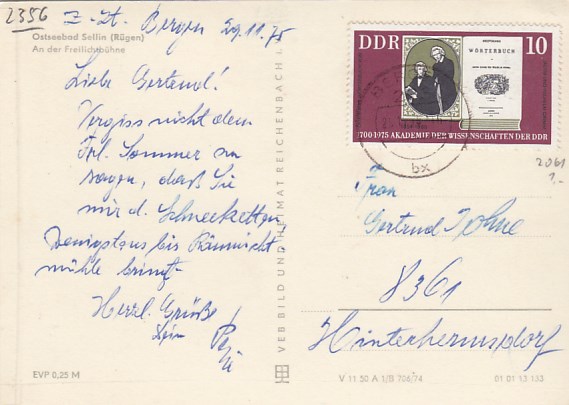 2356
z. Zt. Bergen 29.11.75
Ostseebad Sellin (Rügen)
An der Freilichtbühne
Liebe Gertrud!
Vergiss nicht dem
Frl. Sommer zu
sagen, daß Sie
mir d. Schneeketten
wenigstens bis Räumicht
mühle bringt
Herzl. Grüße
Dein
EVP 0,25 M
VEB BILD UND HEIMAT REICHENBACH i.
DDR
10
WÖRTERBUCH
1700·1975 AKADEMIE DER WISSENSCHAFTEN DER DDR
bx
2061
1.-
Frau
Gertrud Johne
8361
Hinterhermsdorf
V 11 50 A 1/B 706/74
01 01 13 133